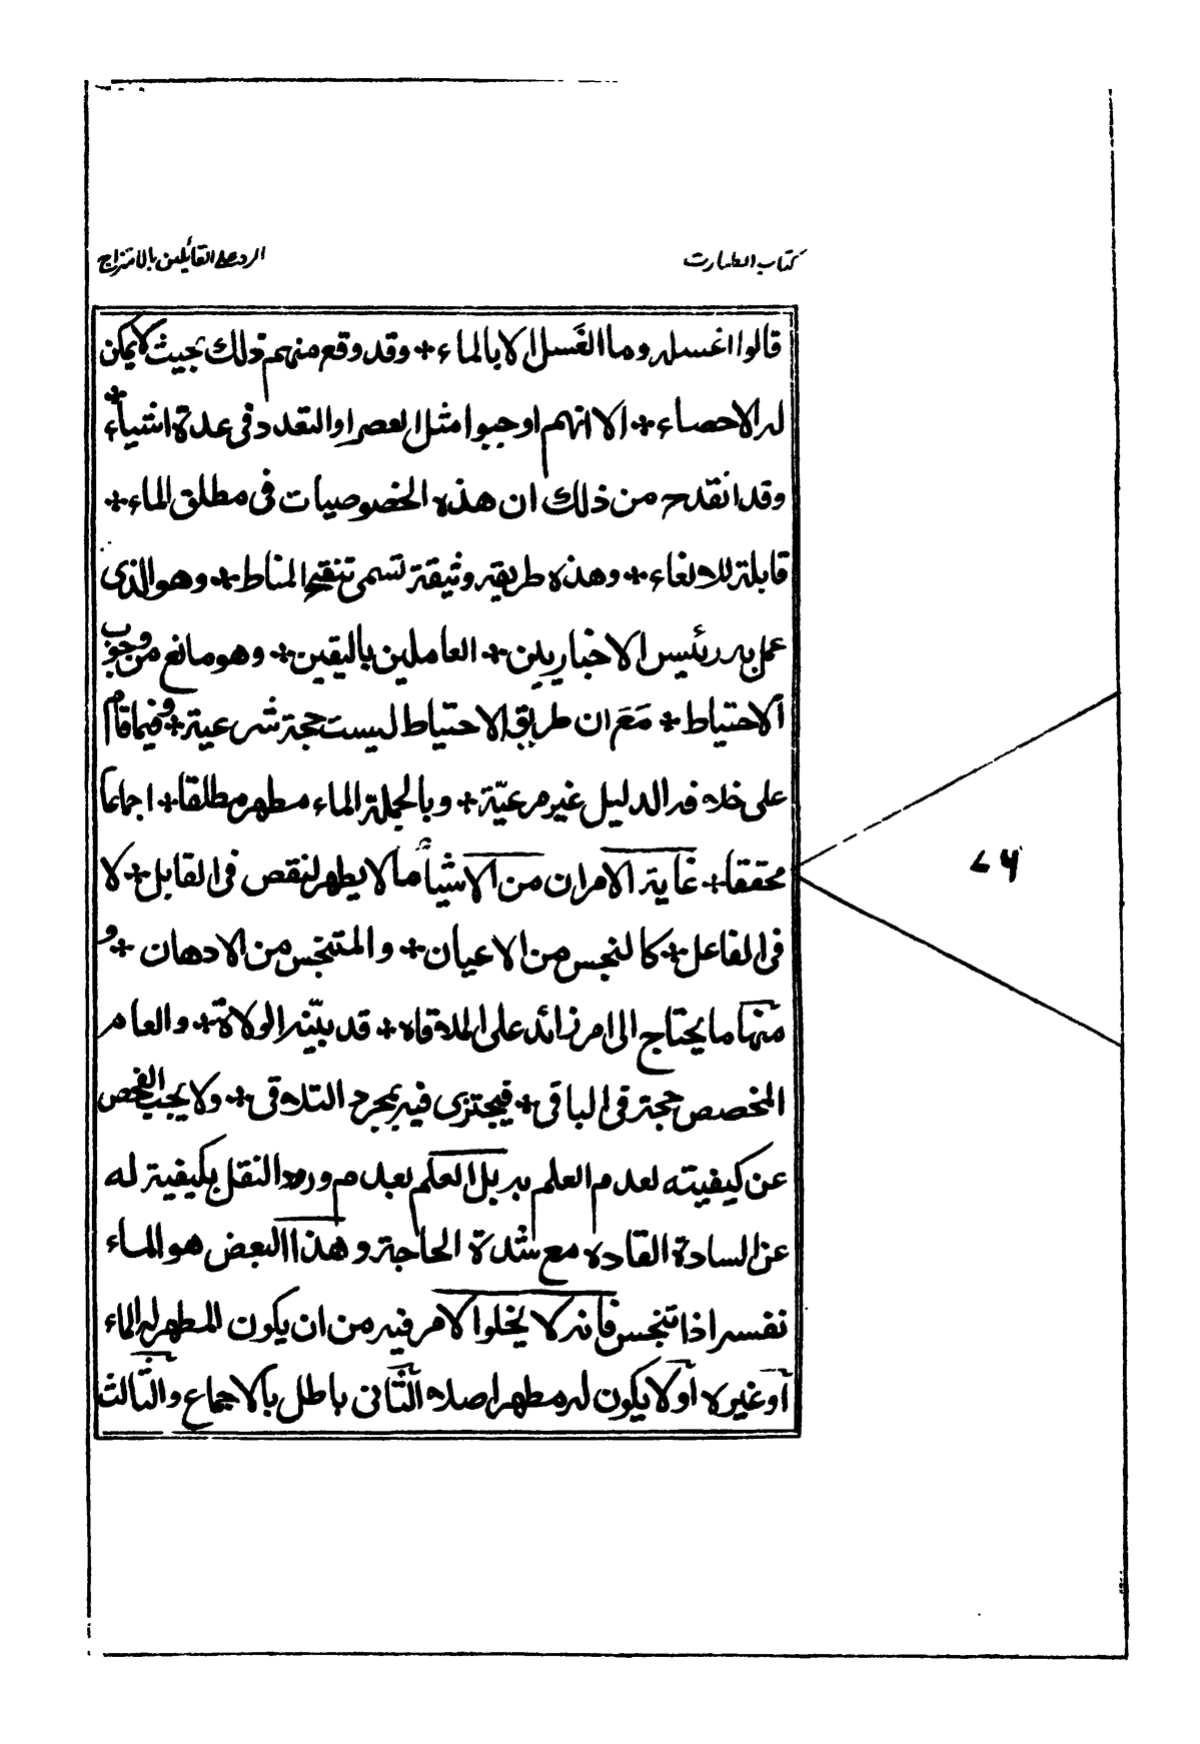 كتاب الطهارت
الرد على القائلين بالامتزاج
قالوا اغسله وما الغَسل الا بالماء + وقد وقع منهم ذلك بحيث لا يمكن
له الاحصاء + الا انهم اوجبوا مثل العصر او التعدد فى عدة اشياء +
وقد انقدح من ذلك ان هذه الخصوصيات فى مطلق الماء +
قابلة للالغاء + وهذه طريقة وثيقة تسمى تنقيح المناط + وهو الذى
عمل به رئيس الاخباريين + العاملين باليقين + وهو مانع من وجوب
الاحتياط + مَعَ ان طريق الاحتياط ليست حجة شرعية + وفيما قام
على خلافه الدليل غير مرعيّة + وبالجملة الماء مطهر مطلقا + اجماعا
محققا + غاية الامر ان من الاشياء ما لا يطهر لنقص فى القابل + لا
فى الفاعل + كالنجس من الاعيان + والمتنجس من الادهان + و
منها ما يحتاج الى امر زائد على الملاقاه + قد بيّنه الولاة + والعام
المخصص حجة فى الباقى + فيجتزى فيه بمجرد التلاقى + ولا يجب الفحص
عن كيفيته لعدم العلم به بل العلم بعدم ورود النقل بكيفية له
عن السادة القاده مع شدة الحاجة وهذا البعض هو الماء
نفسه اذا تنجس فانه لا يخلوا الامر فيه من ان يكون المطهر له الماء
أو غيره أو لا يكون له مطهر اصلا الثانى باطل بالاجماع والثالث
۷۶